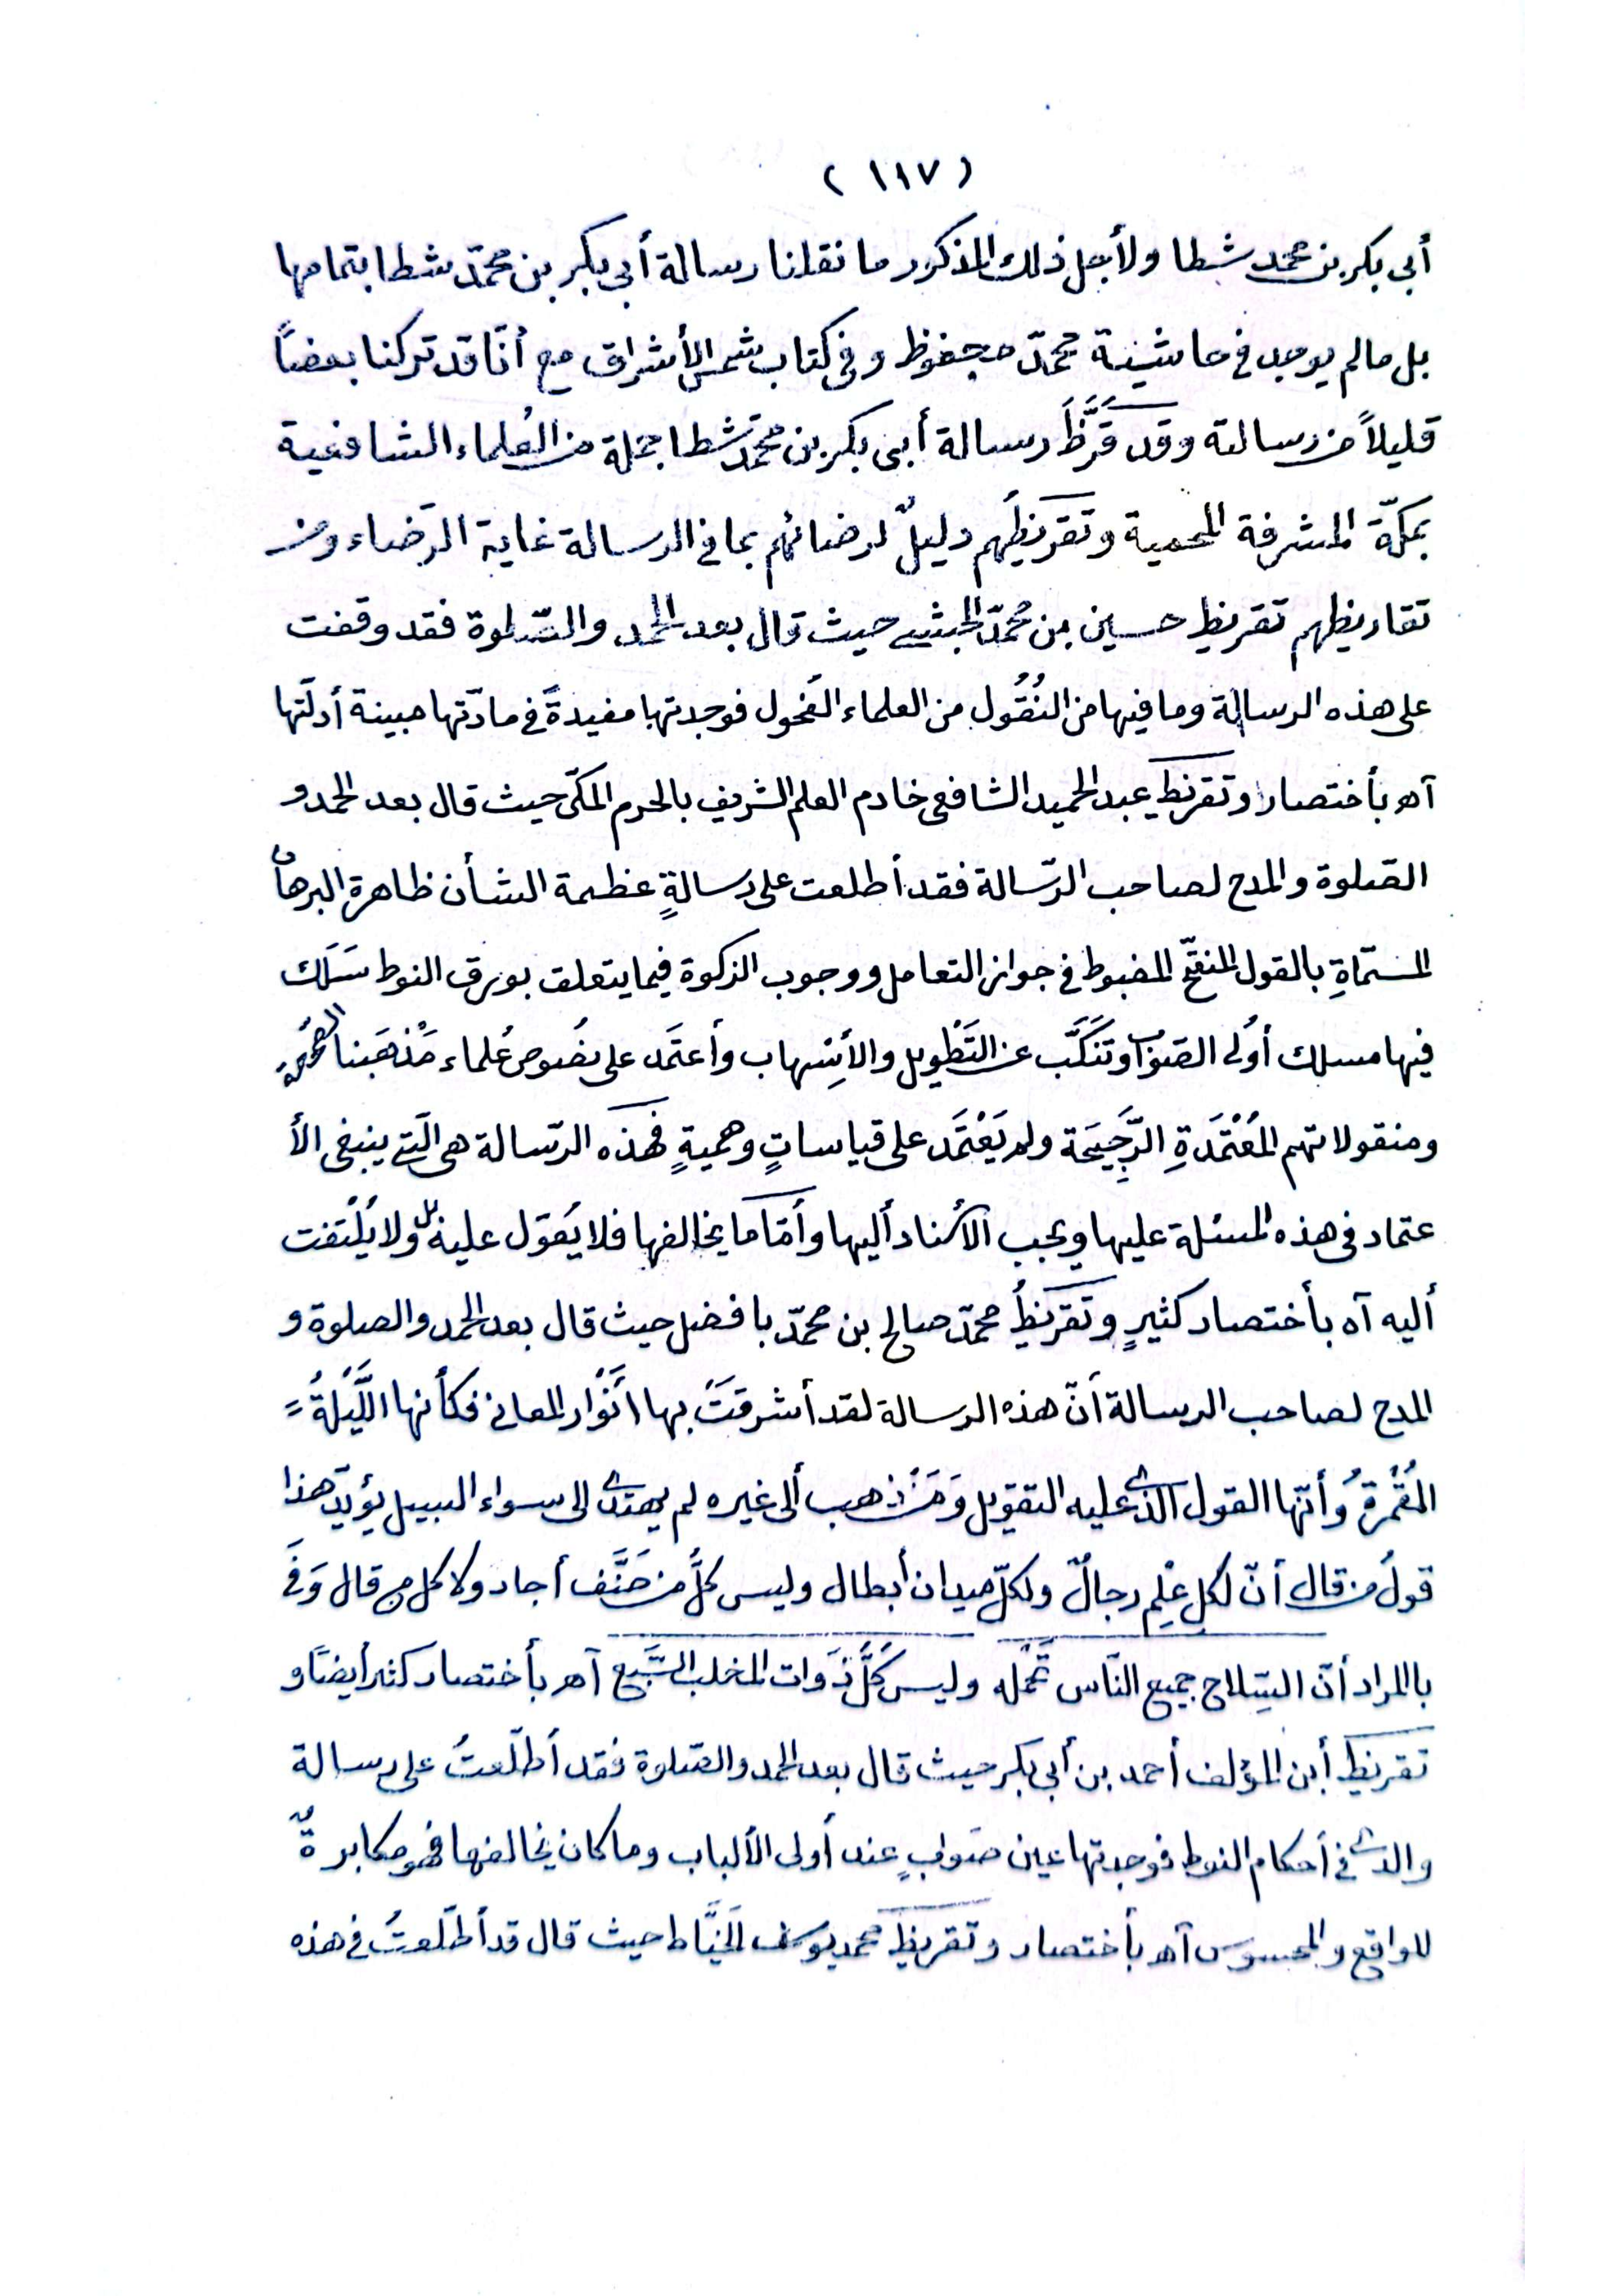 (١١٧)
أبى بكر بن محمّد شطا ولأجل ذلك المذكور ما نقلنا رسالة أبى بكر بن محمّد شطا بتمامها
بل مالم يوجد فى حاشية محمّد محفوظ وفى كتاب شمس الأشراق مع أنّا قد تركنا بعضاً
قليلاً من رسالته وقد قَرَّظَ رسالة أبى بكر بن محمّد شطا جملة من العُلماء الشافعية
بمكّة المشرفة المحمية وتقريظُهم دليلٌ لرضائهم بما فى الرسالة غاية الرّضاء ومن
تقاريظهم تقريظ حسين بن مُحمّد الحبشى حيث قال بعد الحمد والصّلوة فقد وقفت
على هذه الرسالة وما فيها من النُقُول من العلماء الفُحول فوجدتها مفيدةً فى مادّتها مبينة أدلّتها
آه بأختصار وتقريظ عبد الحميد الشافعى خادم العلم الشريف بالحرم المكّى حيث قال بعد الحمد و
الصّلوة والمدح لصاحب الرّسالة فقد أطلعت على رسالةٍ عظيمة الشأن ظاهرة البرهان
المسمّاةِ بالقول المنقّح المضبوط فى جواز التعامل ووجوب الزكوة فيما يتعلق بورق النوط سَلَك
فيها مسلك أُولى الصّواب وتَنَكَّب عن التَطْويل والأسْهاب وأعتَمَد على نصُوص عُلماء مَذْهَبنا الصَّحيحة
ومنقولاتهم المُعْتَمَدةِ الرَّجِيحَة ولم يَعْتَمَد على قياساتٍ وهميةٍ فهذه الرّسالة هى الّتى ينبغى الأ
عتماد فى هذه المسئلة عليها ويجب الأسناد أليها وأمّا ما يخالفها فلا يُعَوّل عليه بل ولا يُلْتفت
أليه آه بأختصار كثيرٍ وتقريظُ محمّد صالح بن محمّد بافضل حيث قال بعد الحمد والصلوة و
المدح لصاحب الرسالة أنّ هذه الرسالة لقد أشرقَتْ بها أنْوار المعانى فكأنها اللَّيْلةُ =
المُقْمرةُ وأنّها القول الذى عليه التقويل وَمَنْ ذهب ألى غيره لم يهتدى الى سواء السبيل يؤيّد هذا
قولُ من قال أنّ لكل عْلِم رجالٌ ولكلّ ميدان أبطال وليس كلُّ من صَنَّف أجاد ولا كل من قال وَفَى
بالمراد أنّ السِّلاح جميع النّاس تَحْمله وليس كُلُّ ذَوات المخلب السَّبع آه بأختصار كثير أيضًا و
تقريظ أبن المؤلف أحمد بن أبى بكر حيث قال بعد الحمد والصّلوة فقد أطلّعتُ على رسالة
والدى فى أحكام النوط فوجدتها عين صَوابٍ عند أُولى الألباب وما كان يخالفها فهو مكابرةٌ
للواقع والمحسوس آه بأختصار وتقريظ محمد يوسف الخيَّاط حيث قال قد أطلّعتُ فى هذه